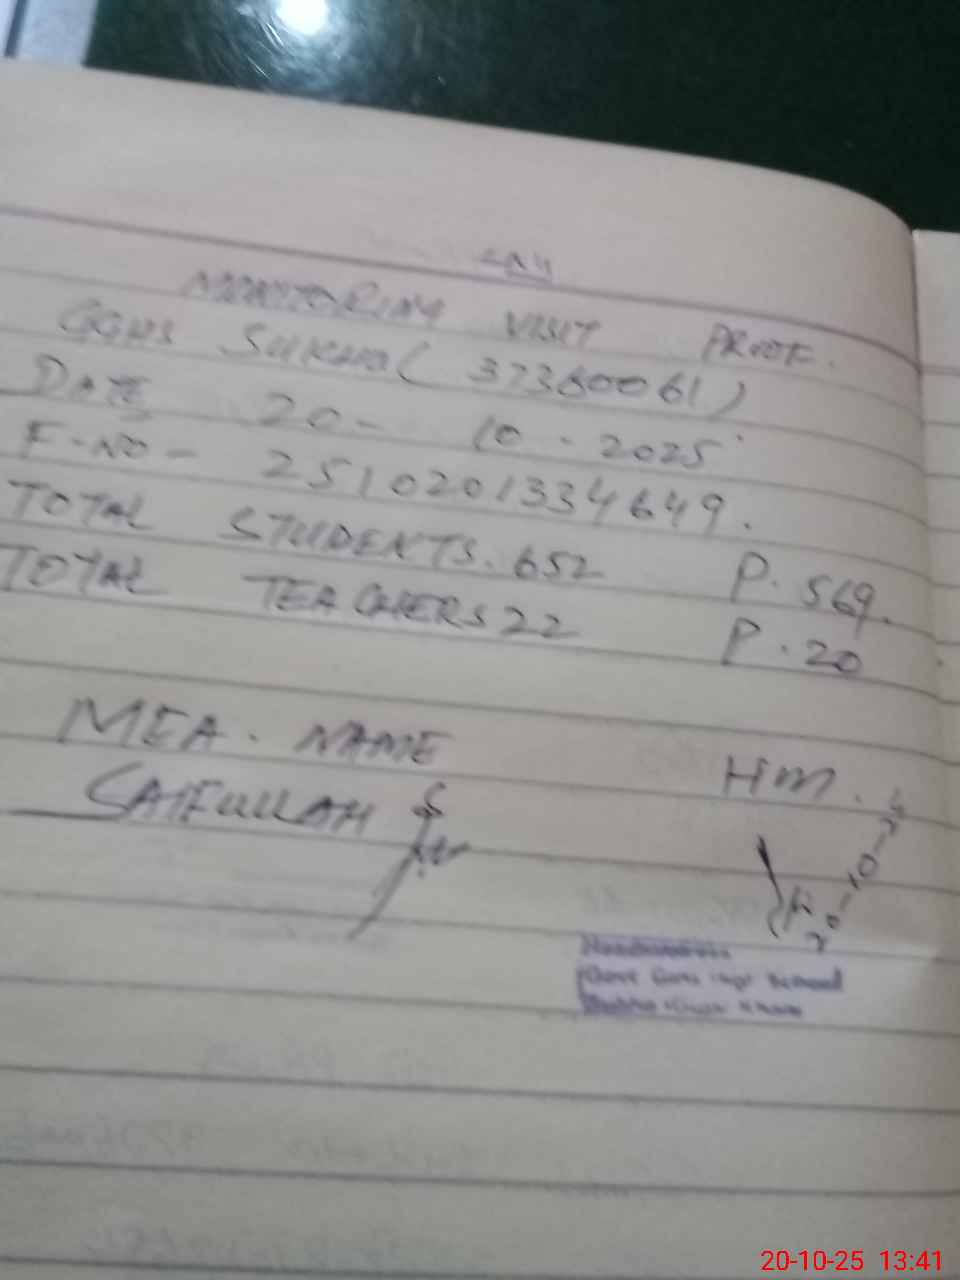 MONITORING VISIT PROOF.
GGHS SUKHO (37360061)
DATE 20 - 10 - 2025
F-NO - 2510201334649.
TOTAL STUDENTS. 652 P. 569.
TOTAL TEACHERS 22 P. 20
MEA. NAME
SAIFULLAH
HM.
Headmistress
Govt Girls High School
20-10-25 13:41